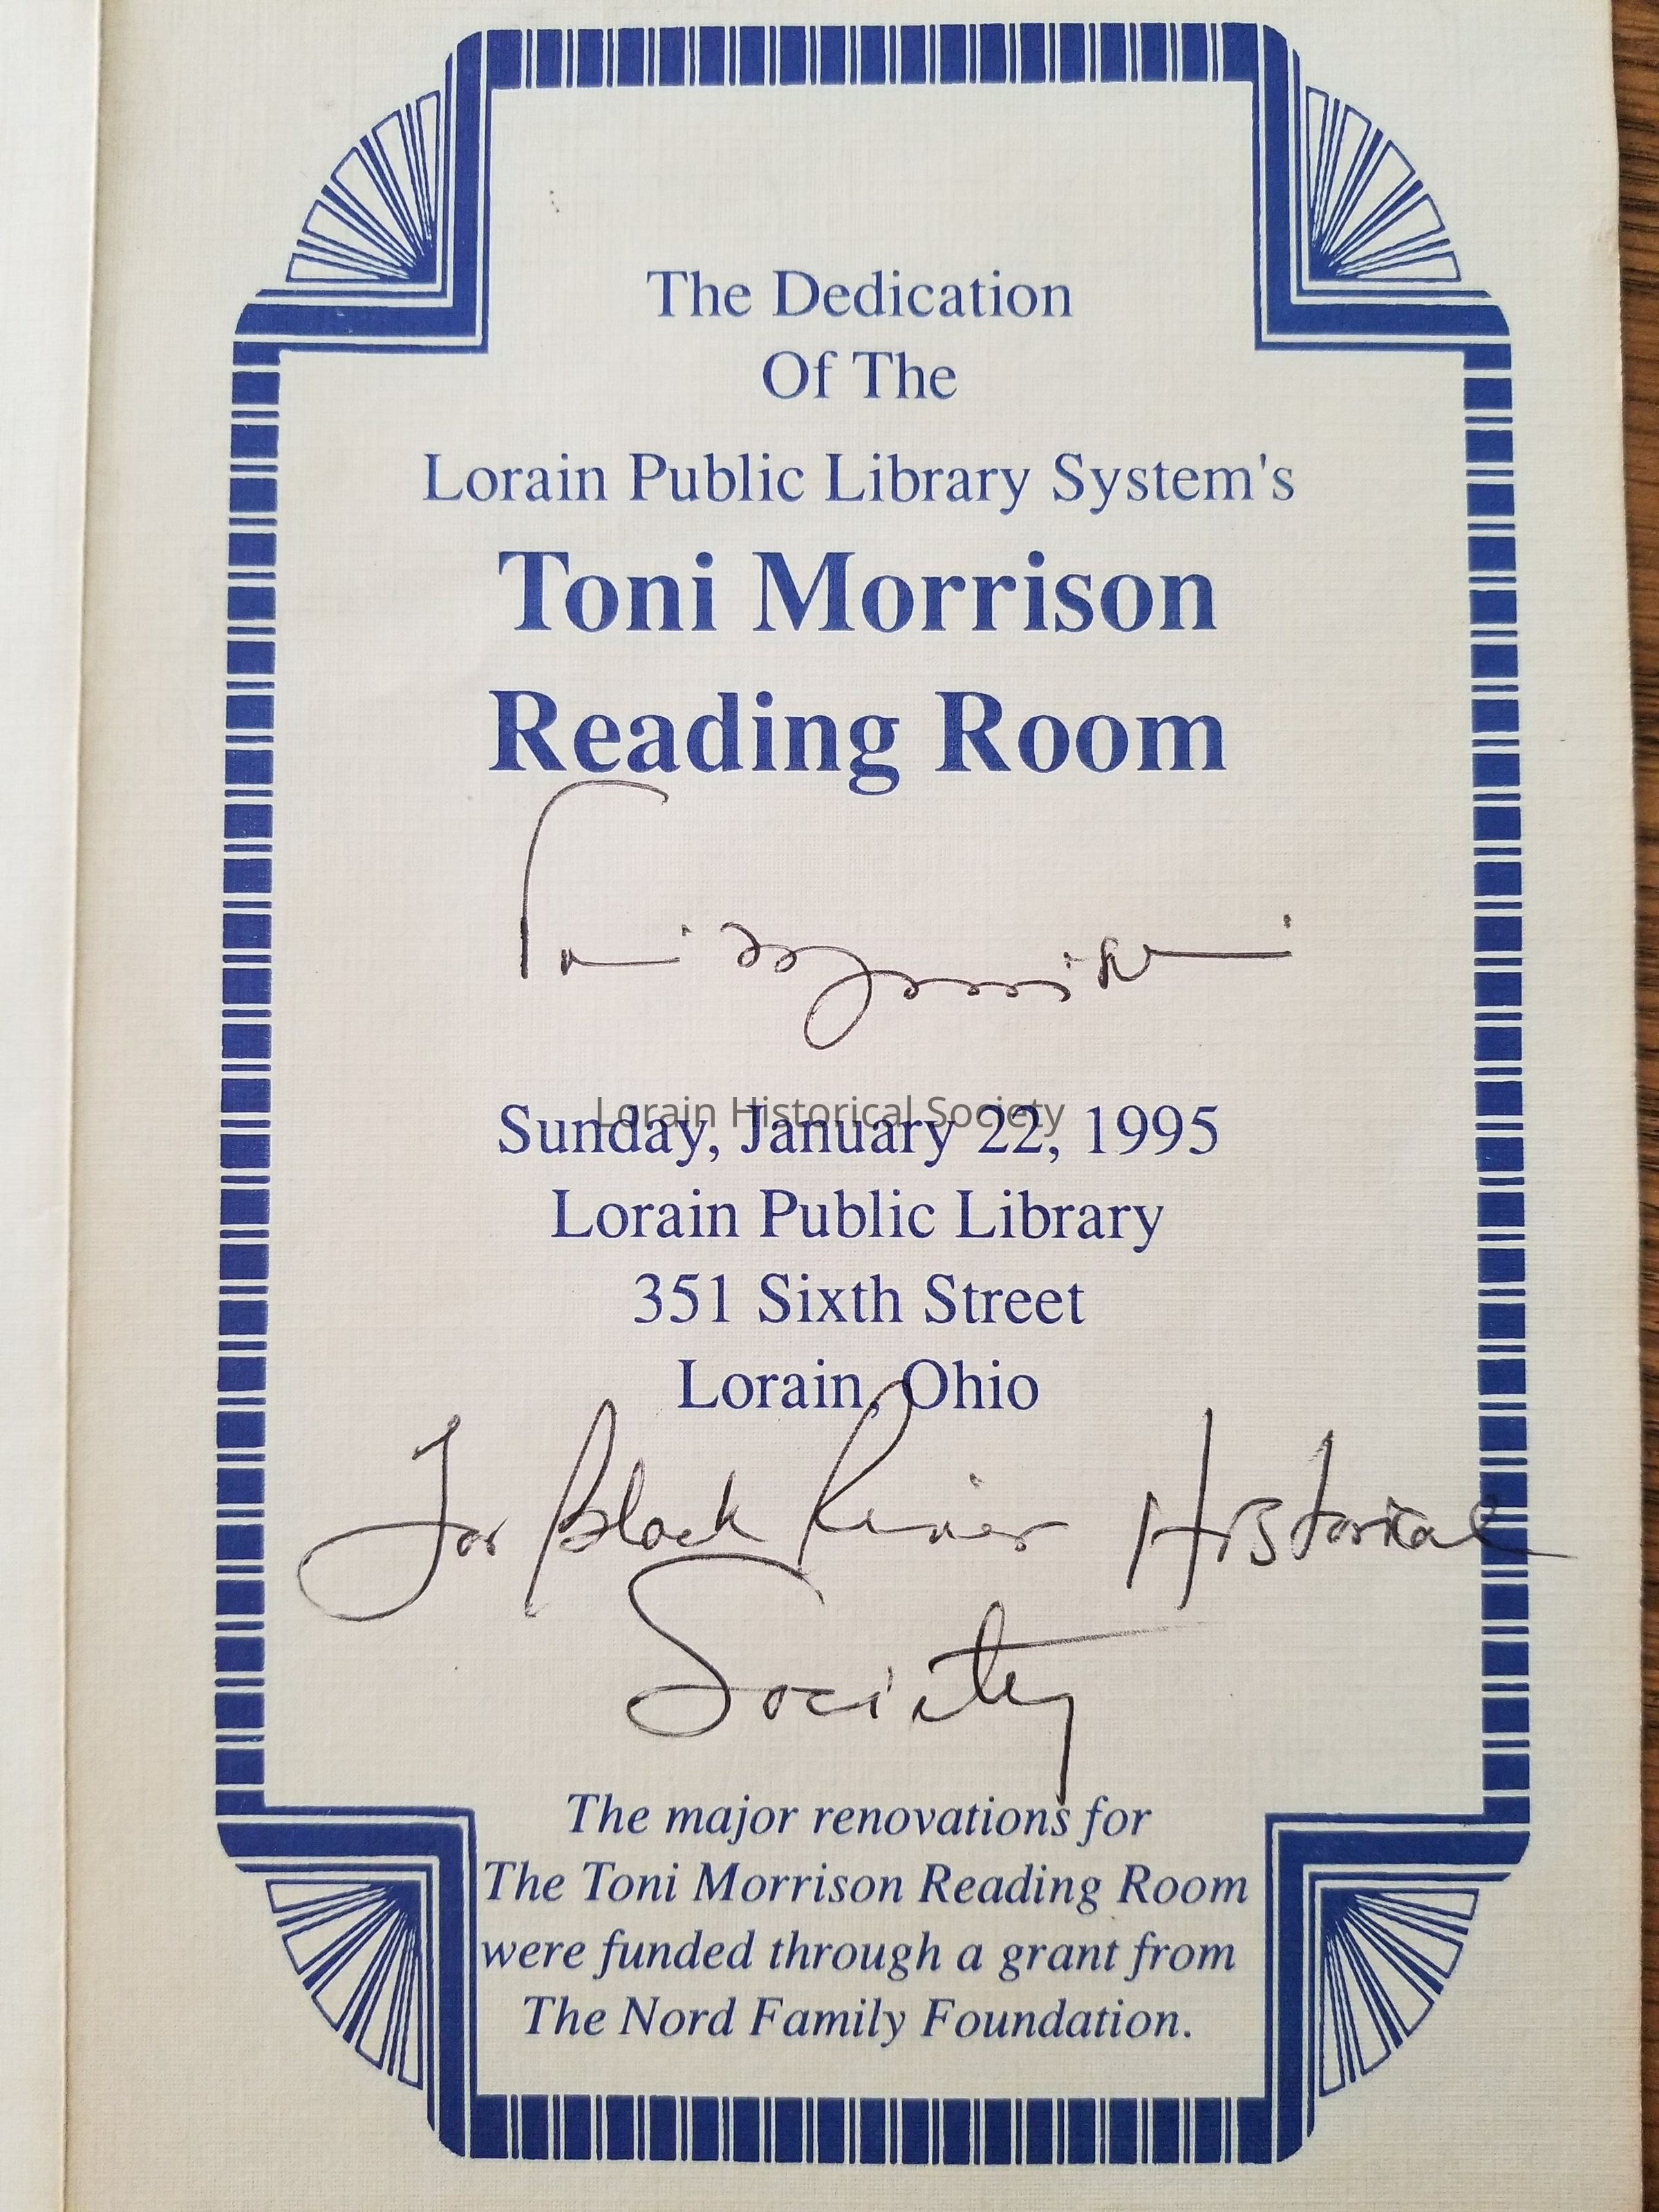 The Dedication
Of The
Lorain Public Library System's
Toni Morrison
Reading Room
Toni Morrison
Lorain Historical Society
Sunday, January 22, 1995
Lorain Public Library
351 Sixth Street
Lorain, Ohio
For Black River Historical
Society
The major renovations for
The Toni Morrison Reading Room
were funded through a grant from
The Nord Family Foundation.